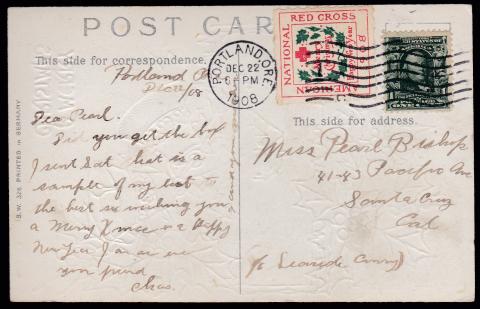 POST CARD
This side for correspondence.
Portland
Dec 22/08
Dear Pearl.
Did you get the box
I sent Sat. that is a
sample of my best to
the best so wishing you
a Merry Xmas and a Happy
New Year I am as ever
your friend
Chas.
B.W. 328 PRINTED IN GERMANY
PORTLAND, ORE.
DEC 22
6 PM
1908
RED CROSS
NATIONAL
AMERICAN
1908
This side for address.
Miss Pearl Bishop
41-43 Pacific Ave
Santa Cruz
Cal
c/o Seaside